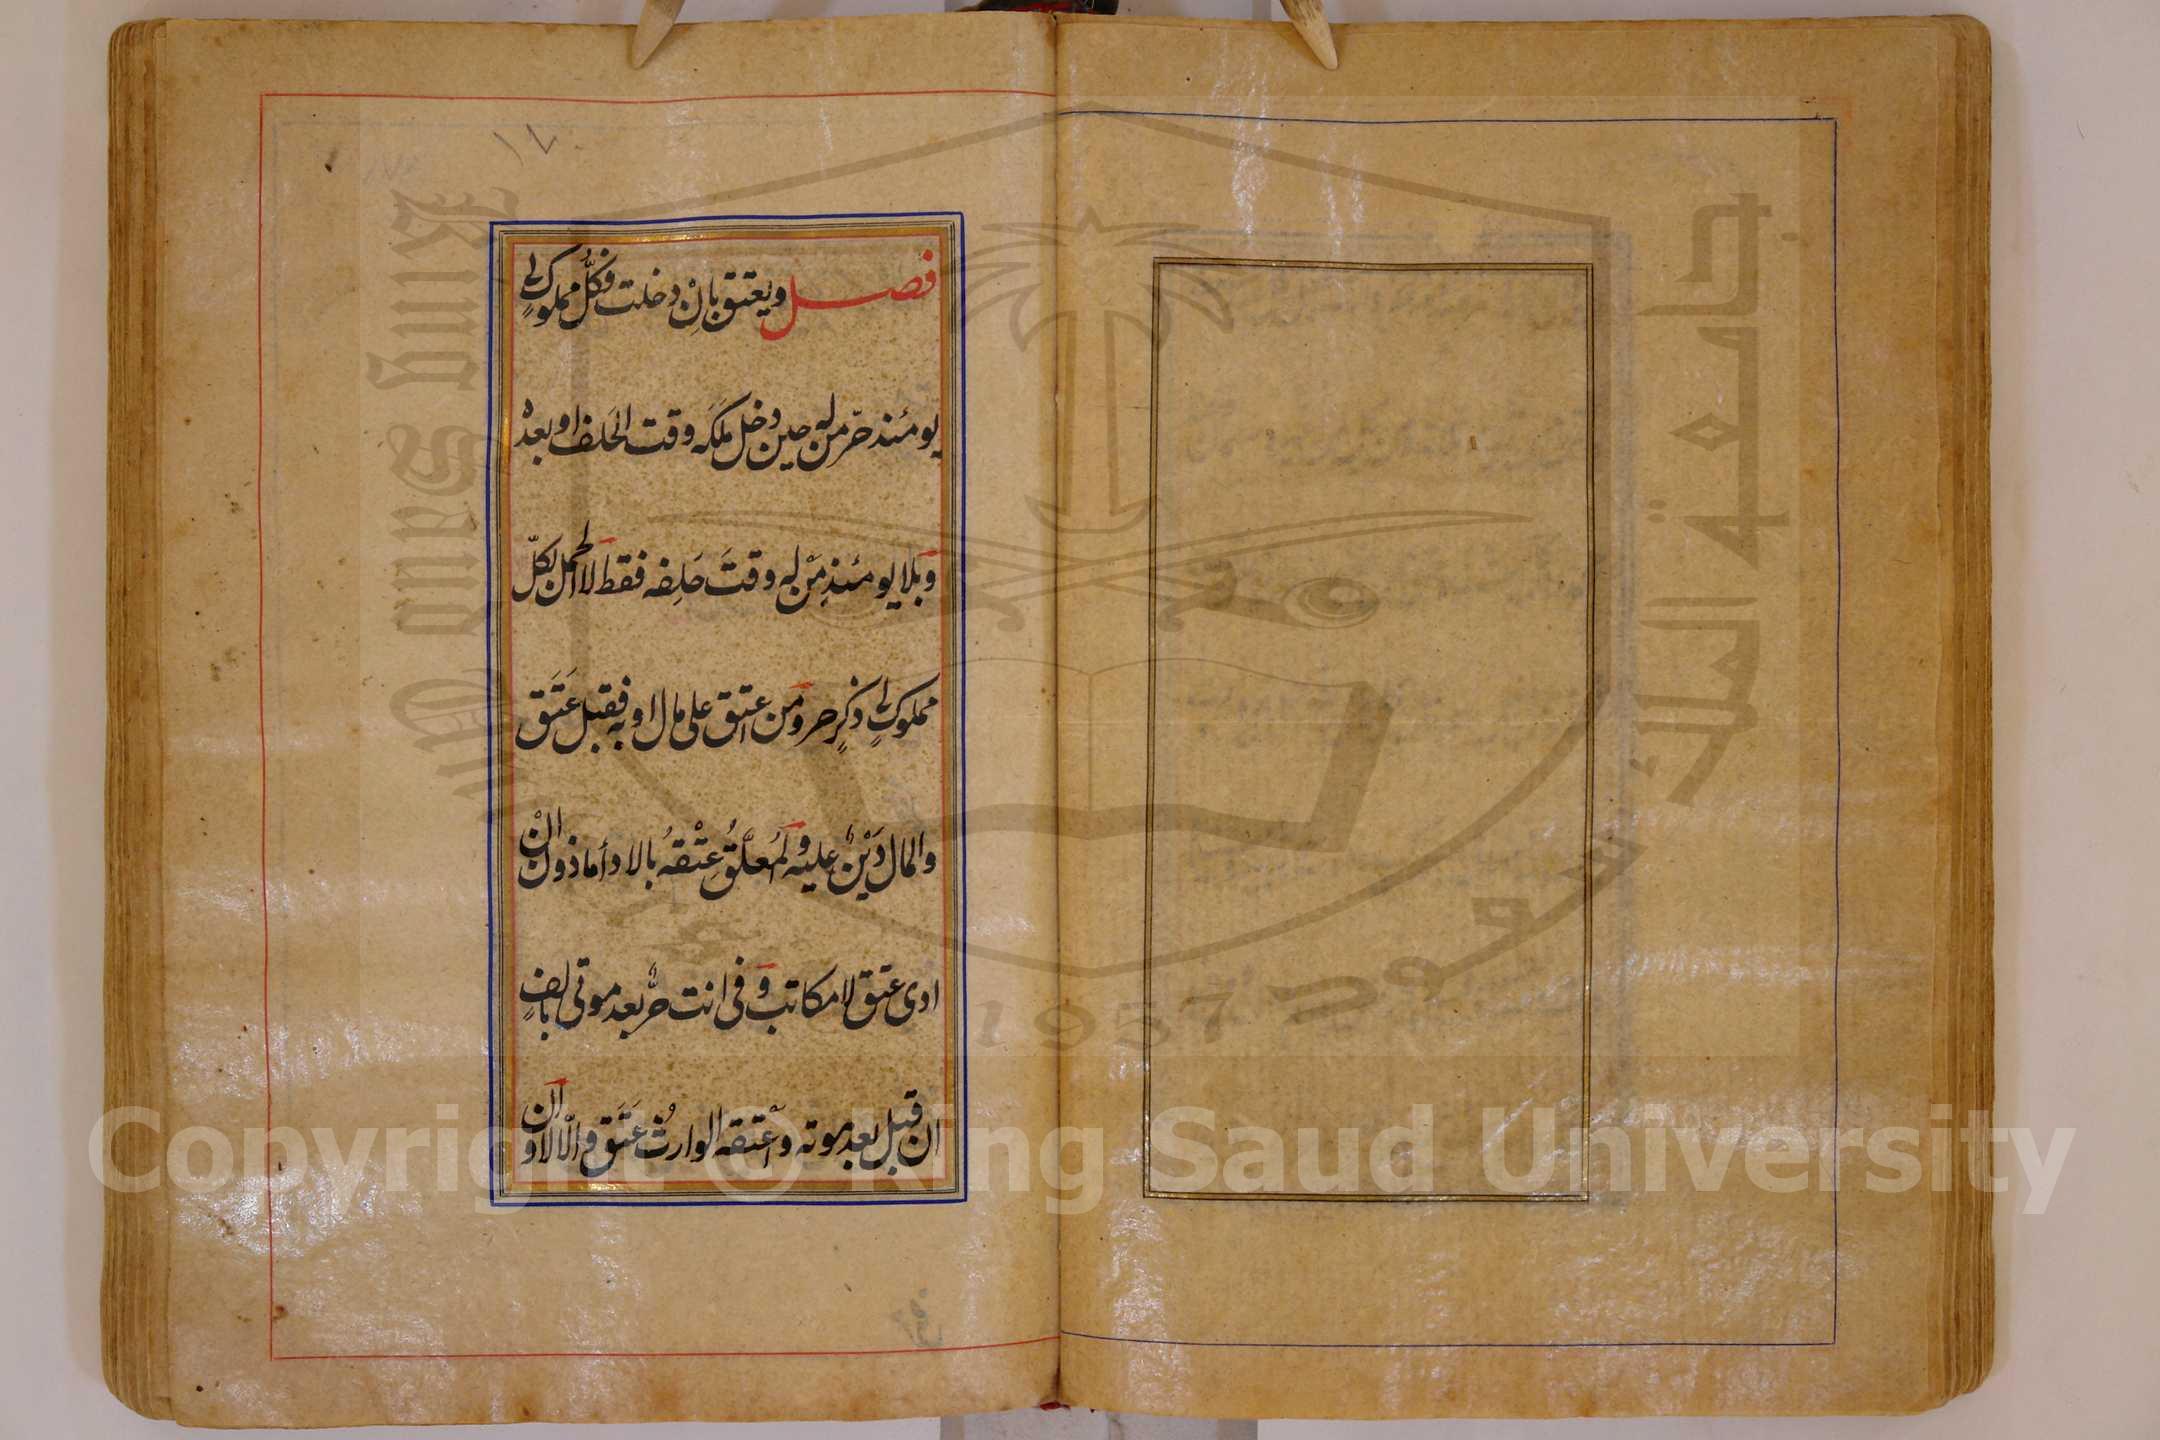 ١٧
فصل ويعتق بإنْ دخلت فكلُّ مملوكٍ لي
يومئذ حرّ من له حين دخل مَلَكَه وقت الحَلف او بعدهْ
وبلا يومئذِ مَنْ له وقتَ حَلِفه فقط لا الحمل بكلّ
مملوكٍ لي ذكرٍ حر ومَن اعتق على مال او به فقبل عَتَقَ
والمال دَيْنٌ عليه والمُعلَّقُ عِتْقهُ بالاداْ ماذون انْ
ادى عتق لا مكاتب وفى انت حرٌّ بعد موتى بالفٍ
ان قبل بعد موته وْاَعْتقه الوارثُ عَتَقَ والّا لا وان
King Saud University
جامعة الملك سعود
1957
Copyright © King Saud University